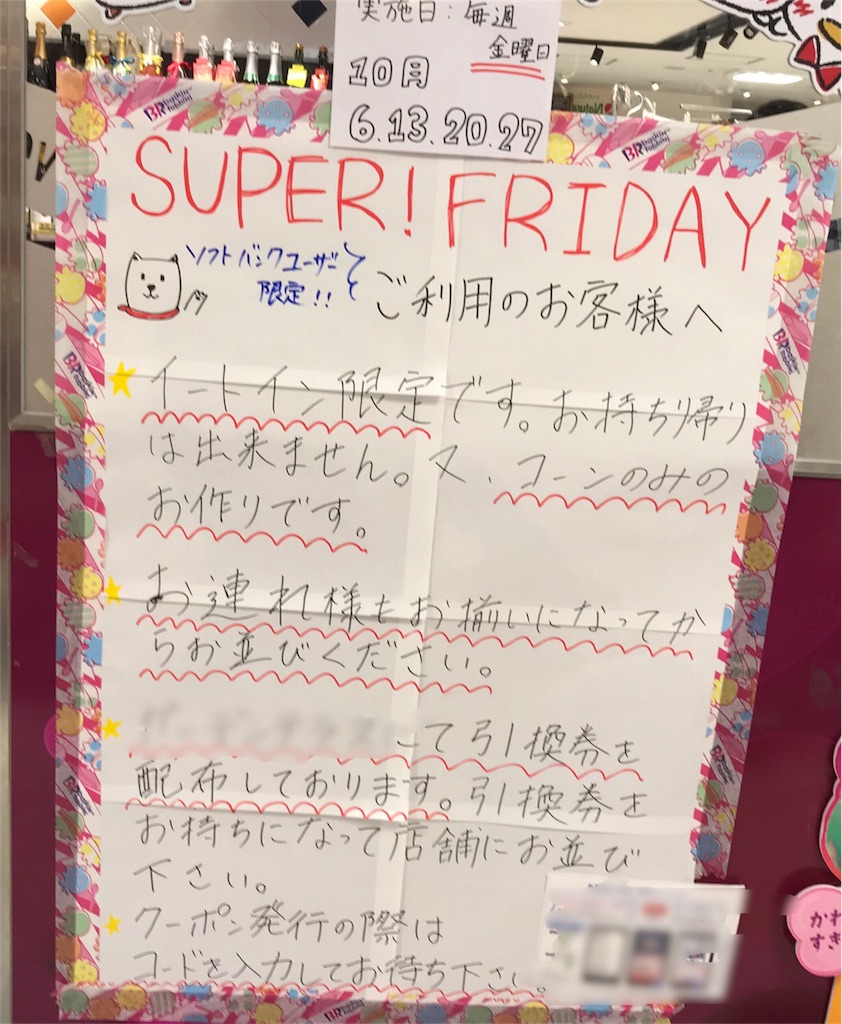 実施日：毎週
金曜日
10月
6.13.20.27
SUPER! FRIDAY
ソフトバンクユーザー
限定!!
ご利用のお客様へ
イートイン限定です。お持ち帰り
は出来ません。又、コーンのみの
お作りです。
お連れ様もお揃いになってか
らお並びください。
にて引換券を
配布しております。引換券を
お持ちになって店舗にお並び
下さい。
クーポン発行の際は
コードを入力してお待ち下さい。
BR Baskin Robbins
かわ
すき